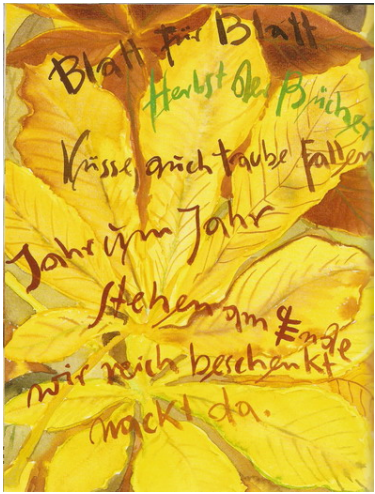 Blatt für Blatt
Herbst der Bücher
Nüsse auch fallen
Jahr um Jahr
stehen am Ende
wir reich beschenkt
nackt da.